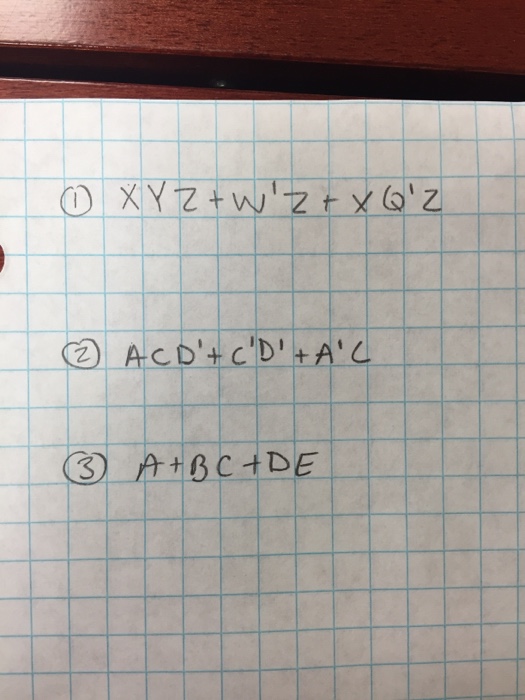 ① XYZ+W'Z+XQ'Z
② ACD'+C'D'+A'C
③ A+BC+DE